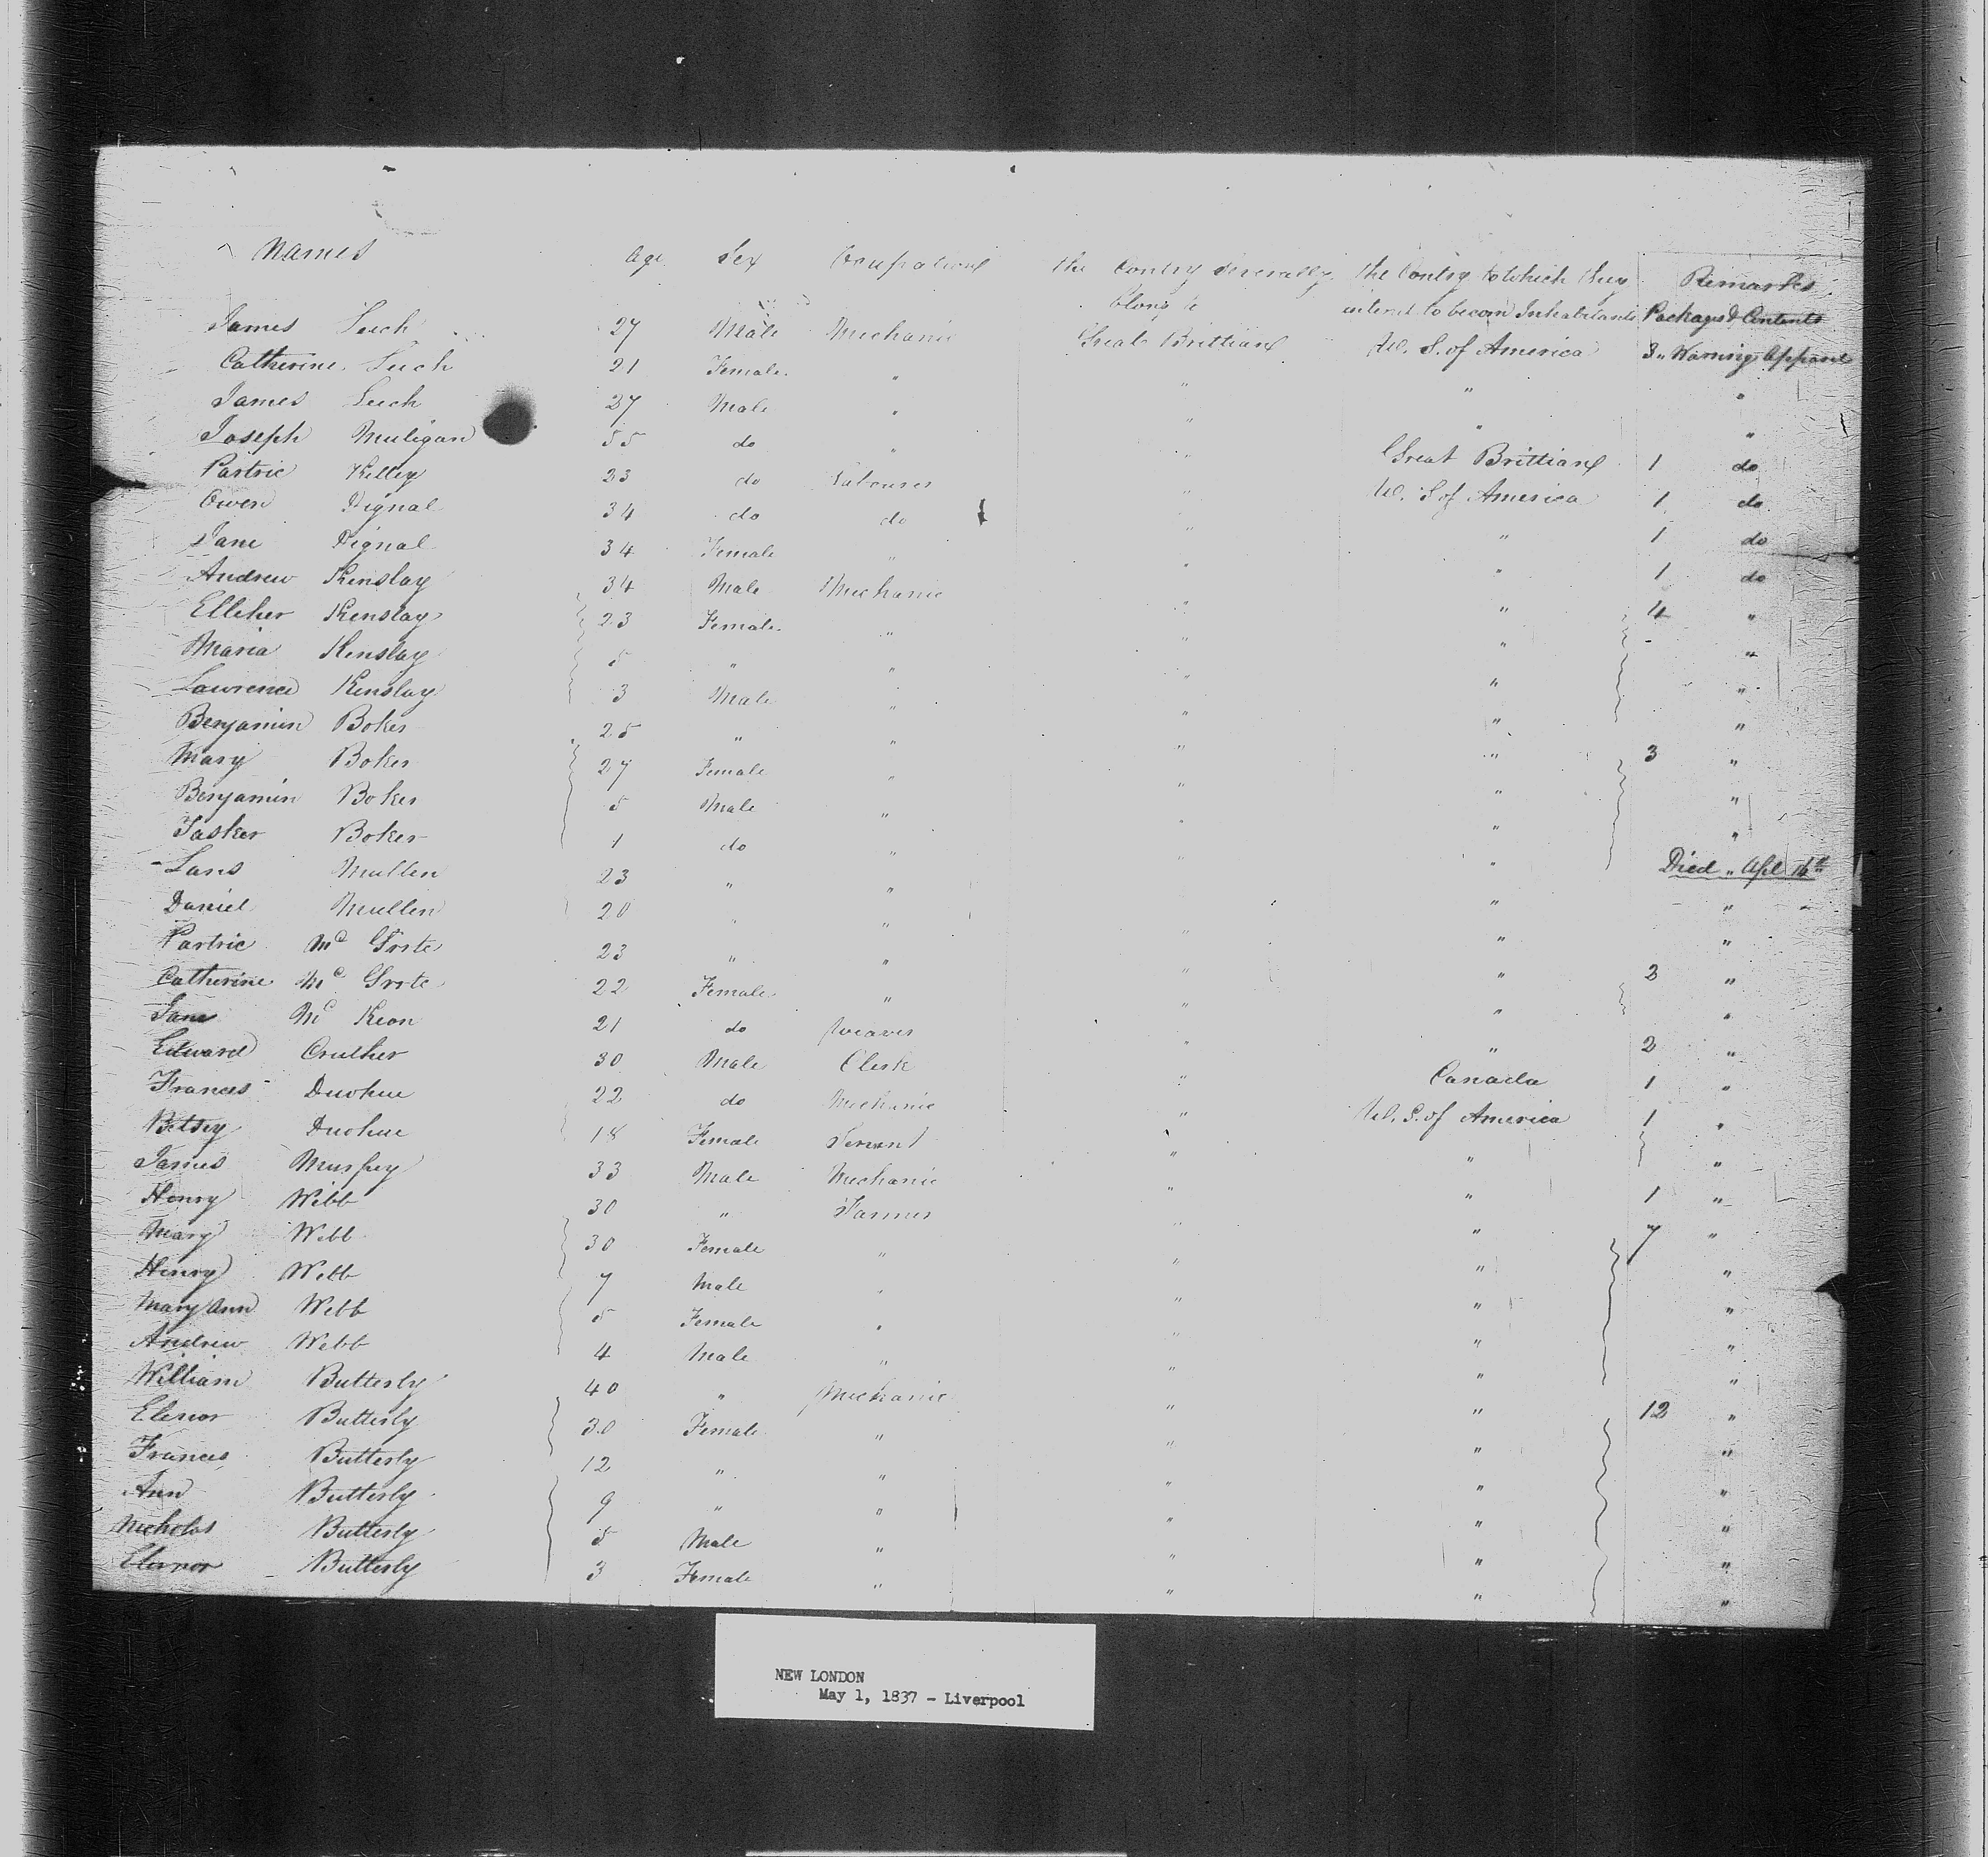 Names Age Sex Occupations the Contry severally belong to the Contry to Which they intend to becom Inhabitants Remarks Packages & Contents
James Leech 27 Male Mechanic Great Brittian U. S. of America 3 " Waring Apparel
Catherine Leech 21 Female " " " "
James Leech 27 Male " " " "
Joseph Muligan 55 do " " Great Brittian 1 do
Partric Kelley 23 do Labourer " U. S of America 1 do
Owen Dignal 34 do do " " 1 do
Jane Dignal 34 Female " " " 1 do
Andrew Kenslay 34 Male Mechanic " " 4 "
Elleher Kenslay 23 Female " " " "
Maria Kenslay 5 " " " " "
Lawrence Kenslay 3 Male " " " "
Benjamin Boker 25 " " " " 3 "
Mary Boker 27 Female " " " "
Benjamin Boker 5 Male " " " "
Tasker Boker 1 do " " " Died " Apl 16th
Lans Mullen 23 " " " " "
Daniel Mullen 20 " " " " "
Partric Mc Grote 23 " " " " 2 "
Catherine Mc Grote 22 Female " " " "
Jane Mc Keon 21 do Weaver " " 2 "
Edward Cruther 30 Male Clerk " Canada 1 "
Frances Duohue 22 do Mechanic " U. S. of America 1 "
Betsey Duohue 18 Female Servant " " "
James Murpey 33 Male Mechanic " " 1 "
Henry Webb 30 " Farmer " " 7 "
Mary Webb 30 Female " " " "
Henry Webb 7 Male " " " "
Mary Ann Webb 5 Female " " " "
Andrew Webb 4 Male " " " "
William Butterly 40 " Mechanic " " 12 "
Elenor Butterly 30 Female " " " "
Frances Butterly 12 " " " " "
Ann Butterly 9 " " " " "
Nicholas Butterly 5 Male " " " "
Elernor Butterly 3 Female " " " "
NEW LONDON
May 1, 1837 - Liverpool